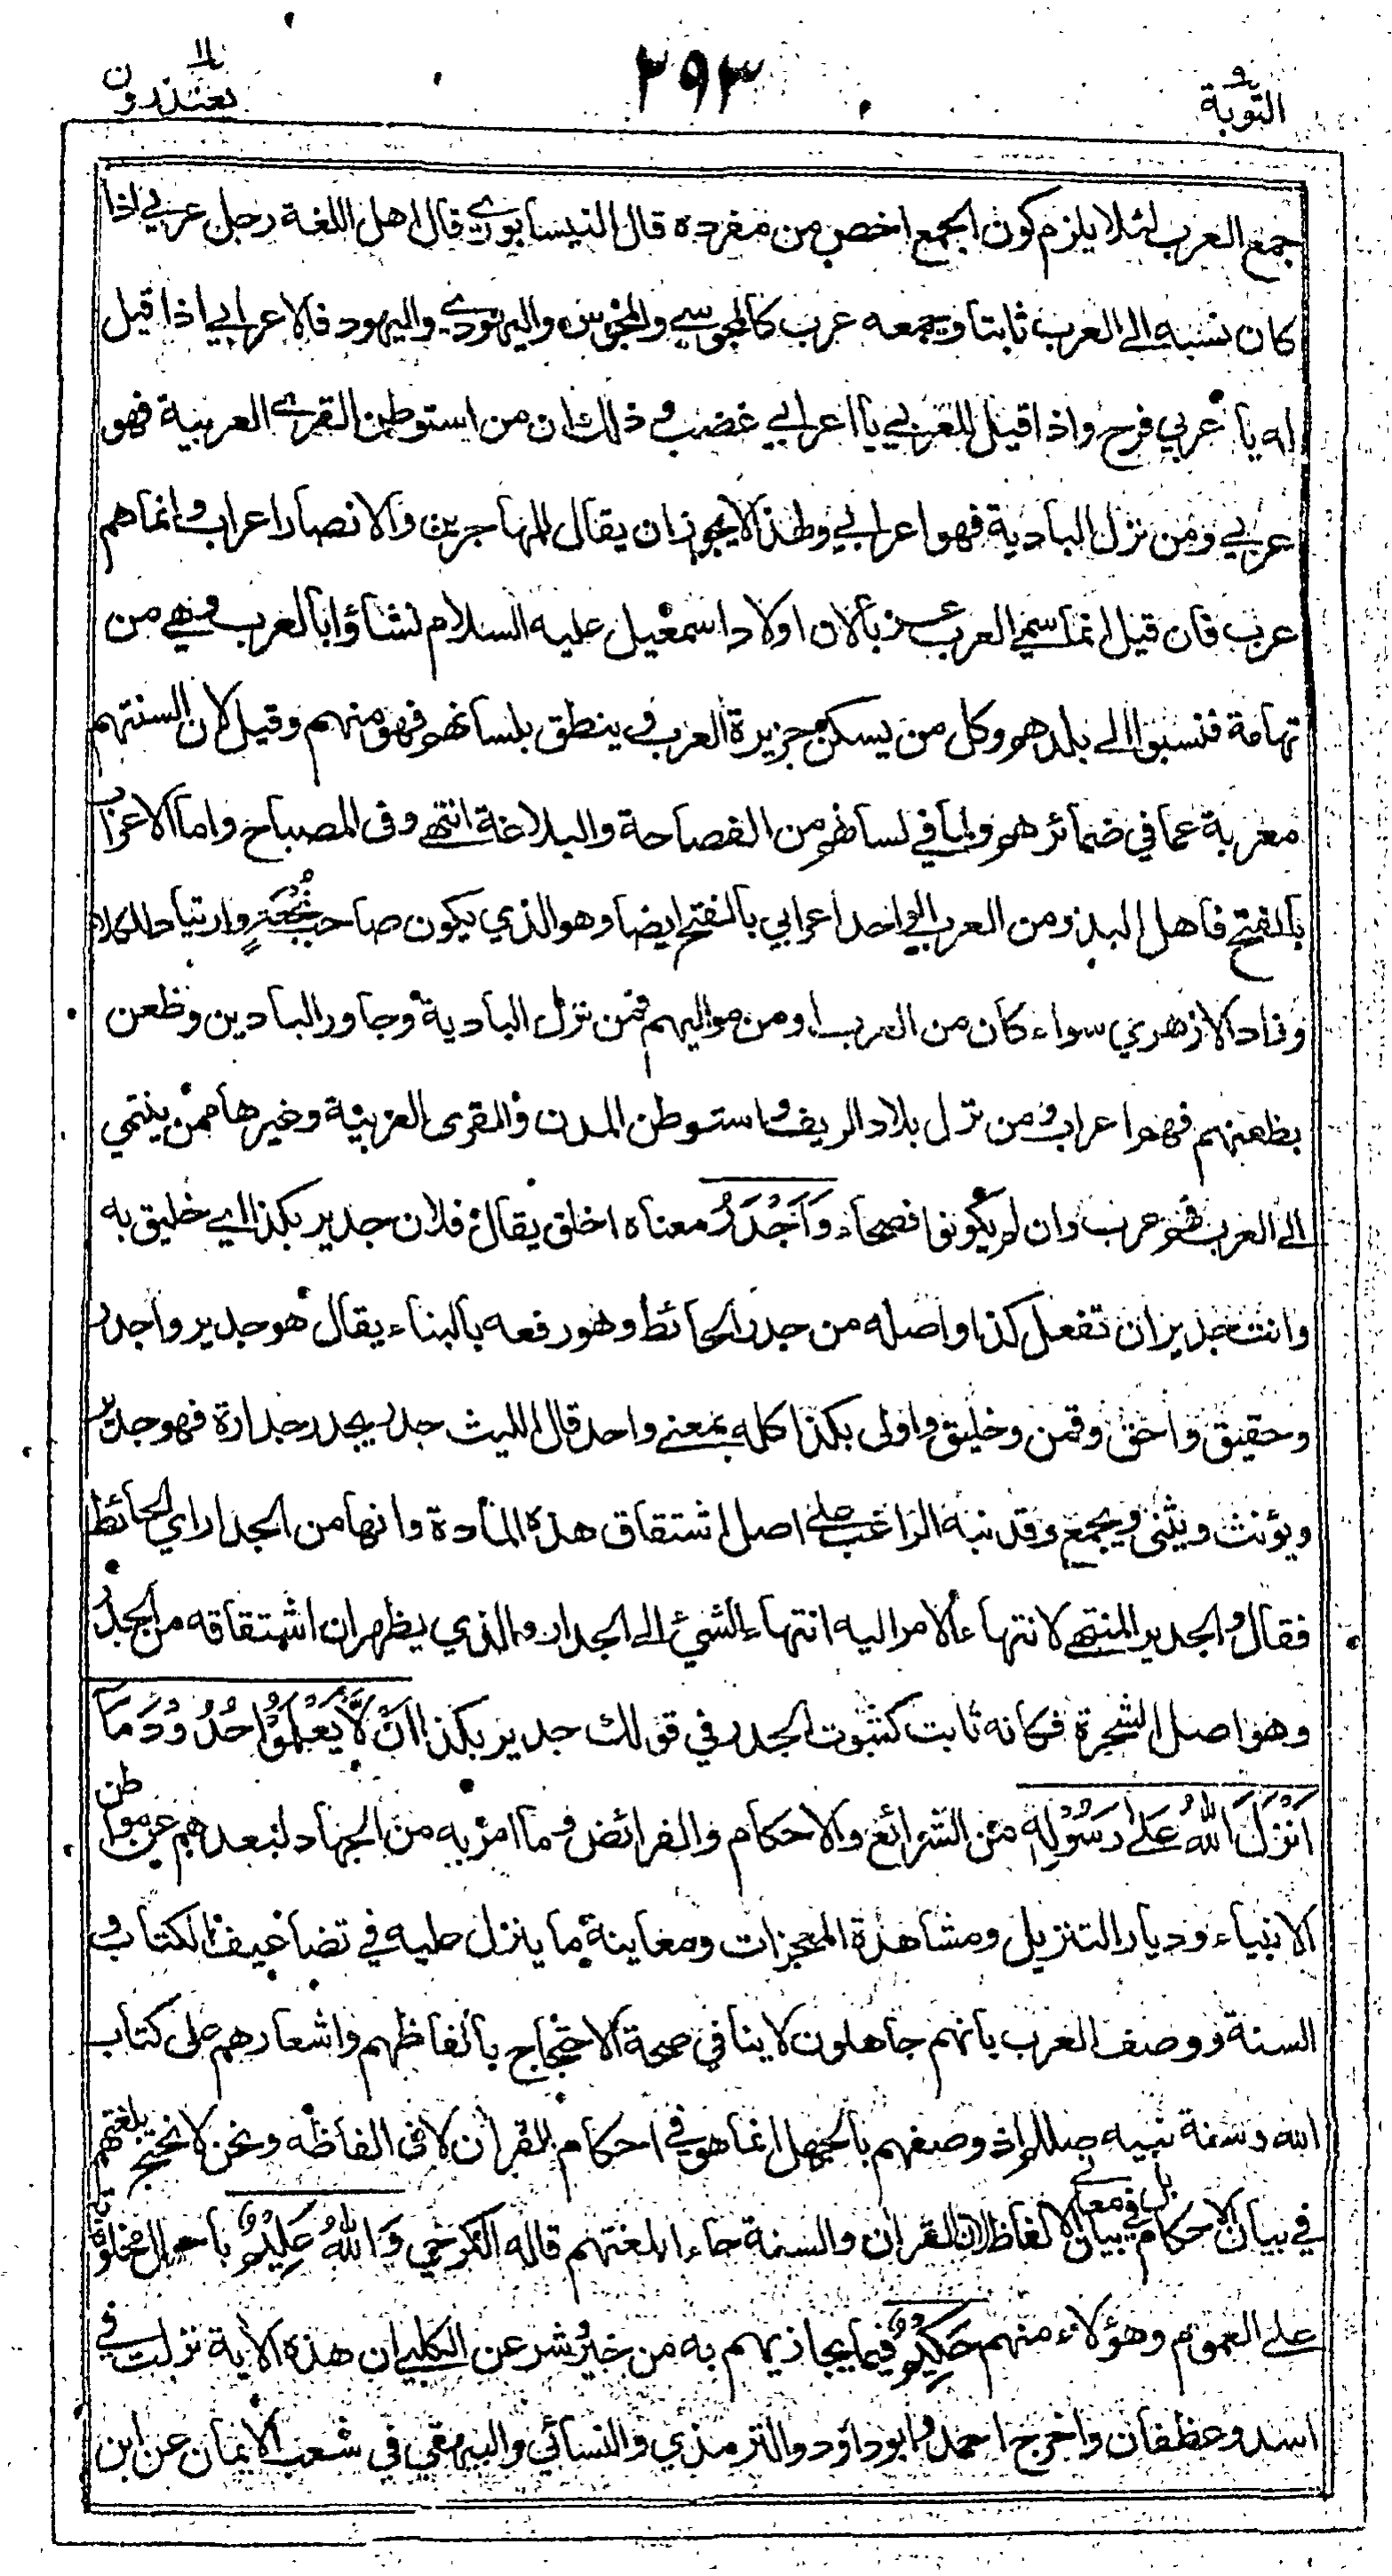 التوبة ٩
٢٩٣
يعتذرون ١١
جمع العرب لئلا يلزم كون الجمع اخص من مفرده قال النيسابوري قال اهل اللغة رجل عربي اذا
كان نسبه الى العرب ثابتا وجمعه عرب كالمجوسي والمجوس واليهودي واليهود فالاعرابي اذا قيل
له يا عربي فرح واذا قيل للعربي يا اعرابي غضب وذلك ان من استوطن القرى العربية فهو
عربي ومن نزل البادية فهو اعرابي ولهذا لا يجوز ان يقال للمهاجرين والانصار اعراب وانما هم
عرب فان قيل انما سمي العرب عربا لان اولاد اسمعيل عليه السلام نشاؤا بالعرب وهي من
تهامة فنسبوا الى بلدهم وكل من يسكن جزيرة العرب وينطق بلسانهم فهو منهم وقيل لان السنتهم
معربة عما في ضمائرهم ولما في لسانهم من الفصاحة والبلاغة انتهى وفى المصباح واما الاعراب
بالفتح فاهل البدو من العرب الواحد اعرابي بالفتح ايضا وهو الذي يكون صاحب نُجْعَةٍ وارتياد للكلاء
وزاد الازهري سواء كان من العرب او من مواليهم فمن نزل البادية وجاور البادين وظعن
بظعنهم فهم اعراب ومن نزل بلاد الريف واستوطن المدن والقرى العربية وغيرها ممن ينتمي
الى العرب فهم عرب وان لم يكونوا فصحاء وَاَجْدَرُ معناه اخلق يقال فلان جدير بكذا اي خليق به
وانت جدير ان تفعل كذا واصله من جدر الحائط وهو رفعه بالبناء يقال هو جدير واجدر
وحقيق واحق وقمن وخليق واولى بكذا كله بمعنى واحد قال الليث جدر يجدر جدارة فهو جدير
ويؤنث ويثنى ويجمع وقد نبه الراغب على اصل اشتقاق هذه المادة وانها من الجدار اي الحائط
فقال والجدير المنتهى لانتهاء الامر اليه انتهاء الشيء الى الجدار والذي يظهر ان اشتقاقه من الجدر
وهو اصل الشجرة فكانه ثابت كثبوت الجدر في قولك جدير بكذا اَنْ لَّا يَعْلَمُوْا حُدُوْدَ مَا
اَنْزَلَ اللهُ عَلٰى رَسُوْلِهٖ من الشرائع والاحكام والفرائض وما امر به من الجهاد لبعدهم عن مواطن
الانبياء وديار التنزيل ومشاهدة المعجزات ومعاينة ما ينزل عليه في تضاعيف الكتاب و
السنة ووصف العرب بانهم جاهلون لا ينافي صحة الاحتجاج بالفاظهم واشعارهم على كتاب
الله وسنة نبيه صللم اذ وصفهم بالجهل انما هو في احكام القران لا فى الفاظه ونحن لا نحتج بلغتهم
في بيان الاحكام بل في بيان معاني الالفاظ لان القران والسنة جاءا بلغتهم قاله الكرخي وَاللهُ عَلِيْمٌ باحوال مخلوقاته
على العموم وهؤلاء منهم حَكِيْمٌ فيما يجازيهم به من خير وشر عن الكلبي ان هذه الاية نزلت في
اسد وغطفان واخرج احمد وابو داود والترمذي والنسائي والبيهقي في شعب الايمان عن ابن